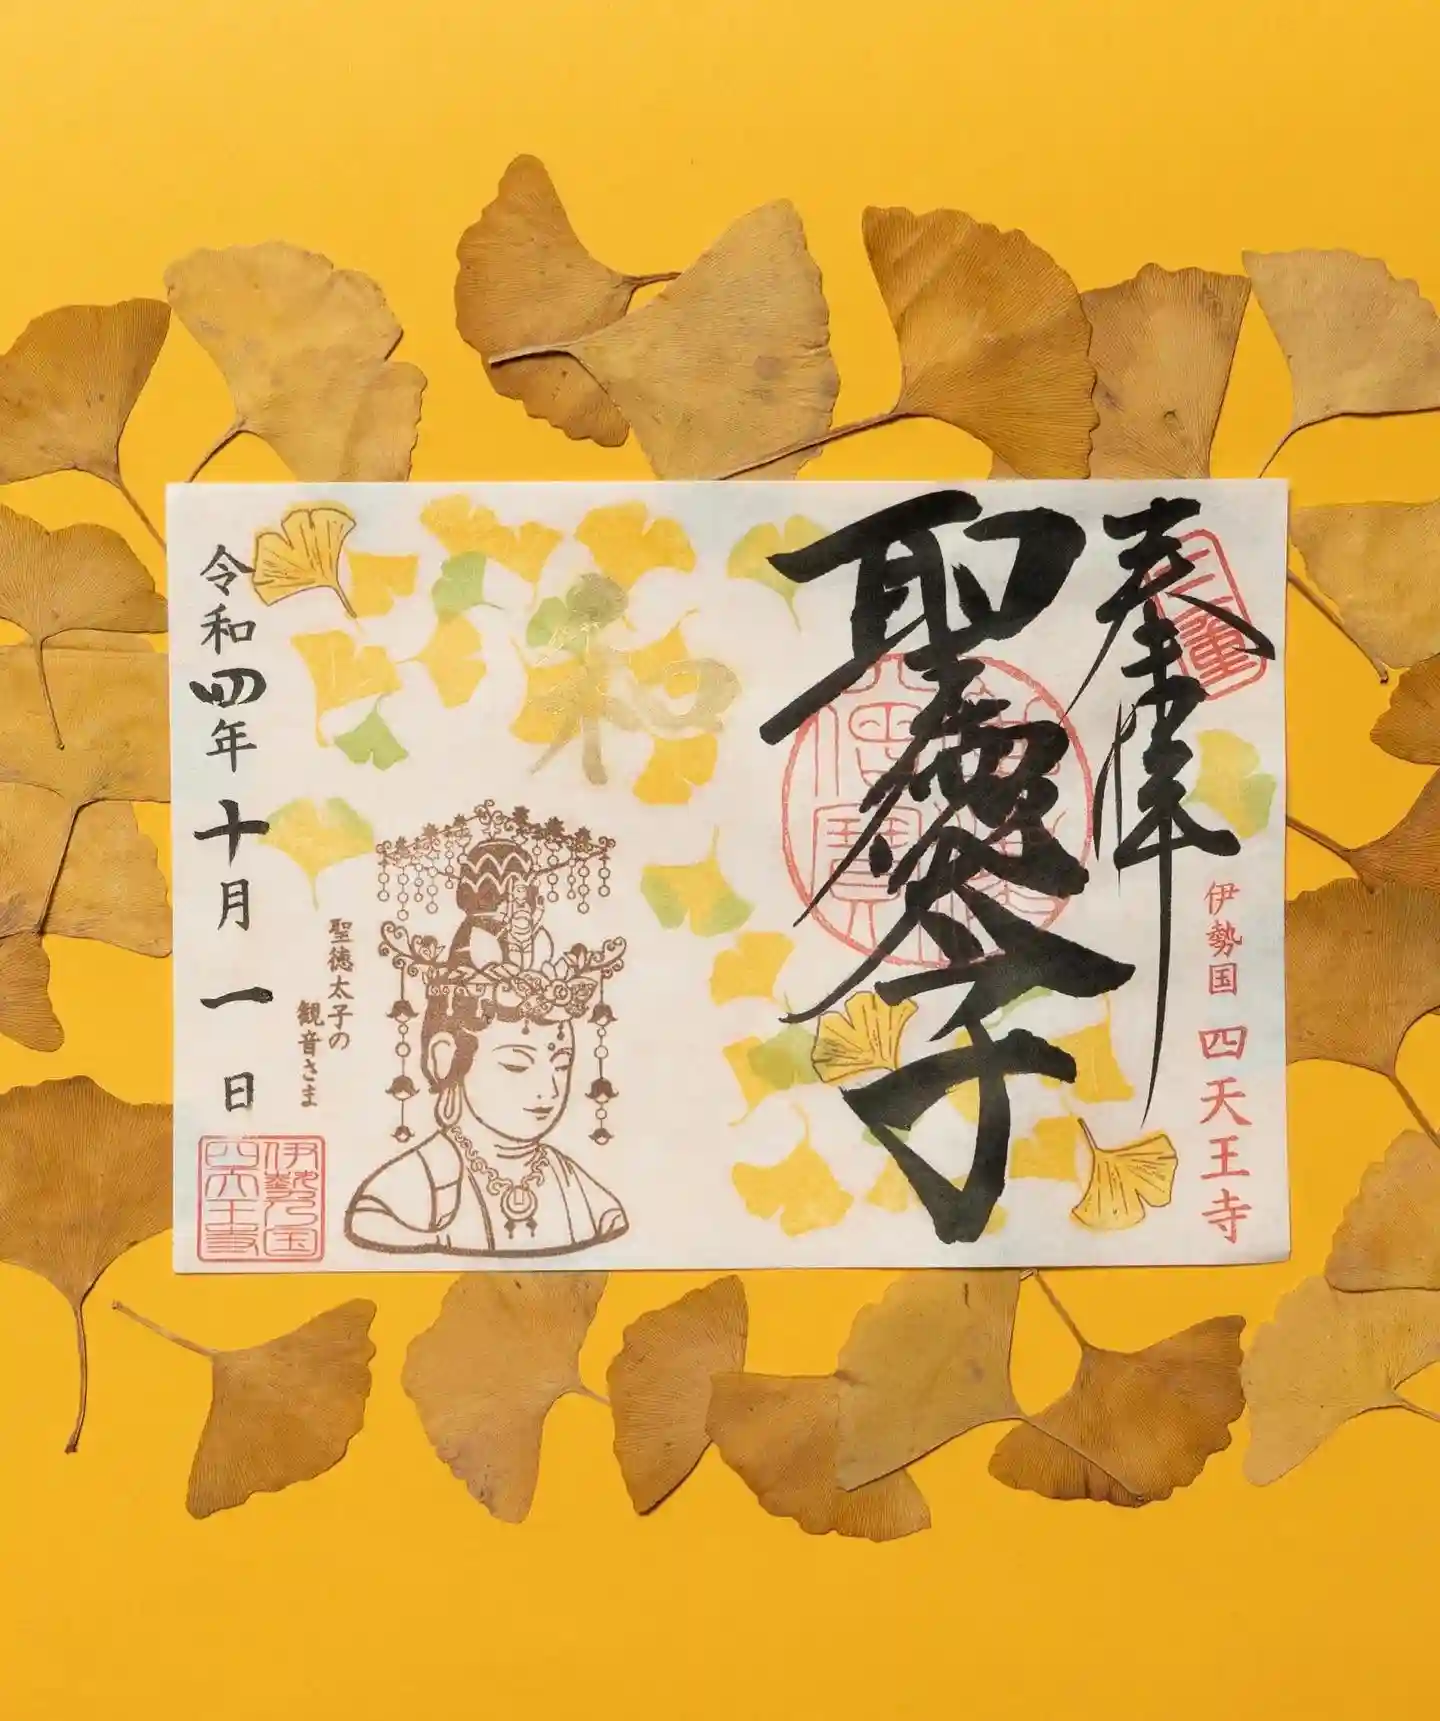 奉拝
聖徳太子
伊勢国 四天王寺
三重
和
聖徳太子の
観音さま
令和四年十月一日
伊勢乃国
四天王寺